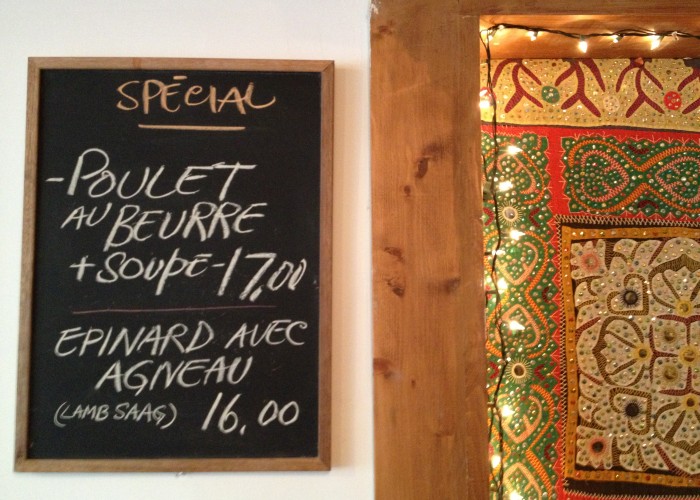 SPÉCIAL
-POULET
AU BEURRE
+ SOUPE - 17,00
EPINARD AVEC
AGNEAU
(LAMB SAAG) 16.00